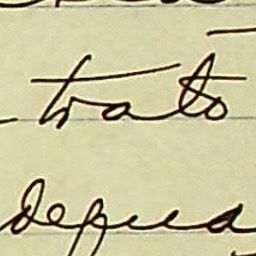 trato
dequa